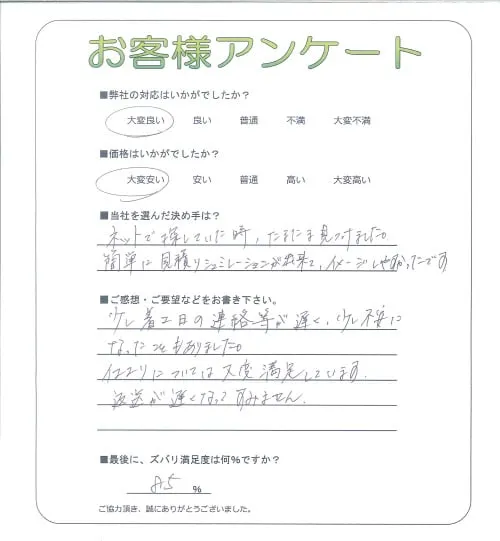 お客様アンケート
■弊社の対応はいかがでしたか？
大変良い 良い 普通 不満 大変不満
■価格はいかがでしたか？
大変安い 安い 普通 高い 大変高い
■当社を選んだ決め手は？
ネットで探していた時，たまたま見つけました。
簡単に見積りシュミレーションが出来て，イメージしやすかったです
■ご感想・ご要望などをお書き下さい。
少し着工日の連絡等が遅く，少し不安に
なったこともありました。
仕上りについては大変満足しています．
返送が遅くなってすみません．
■最後に、ズバリ満足度は何％ですか？
85 ％
ご協力頂き、誠にありがとうございました。